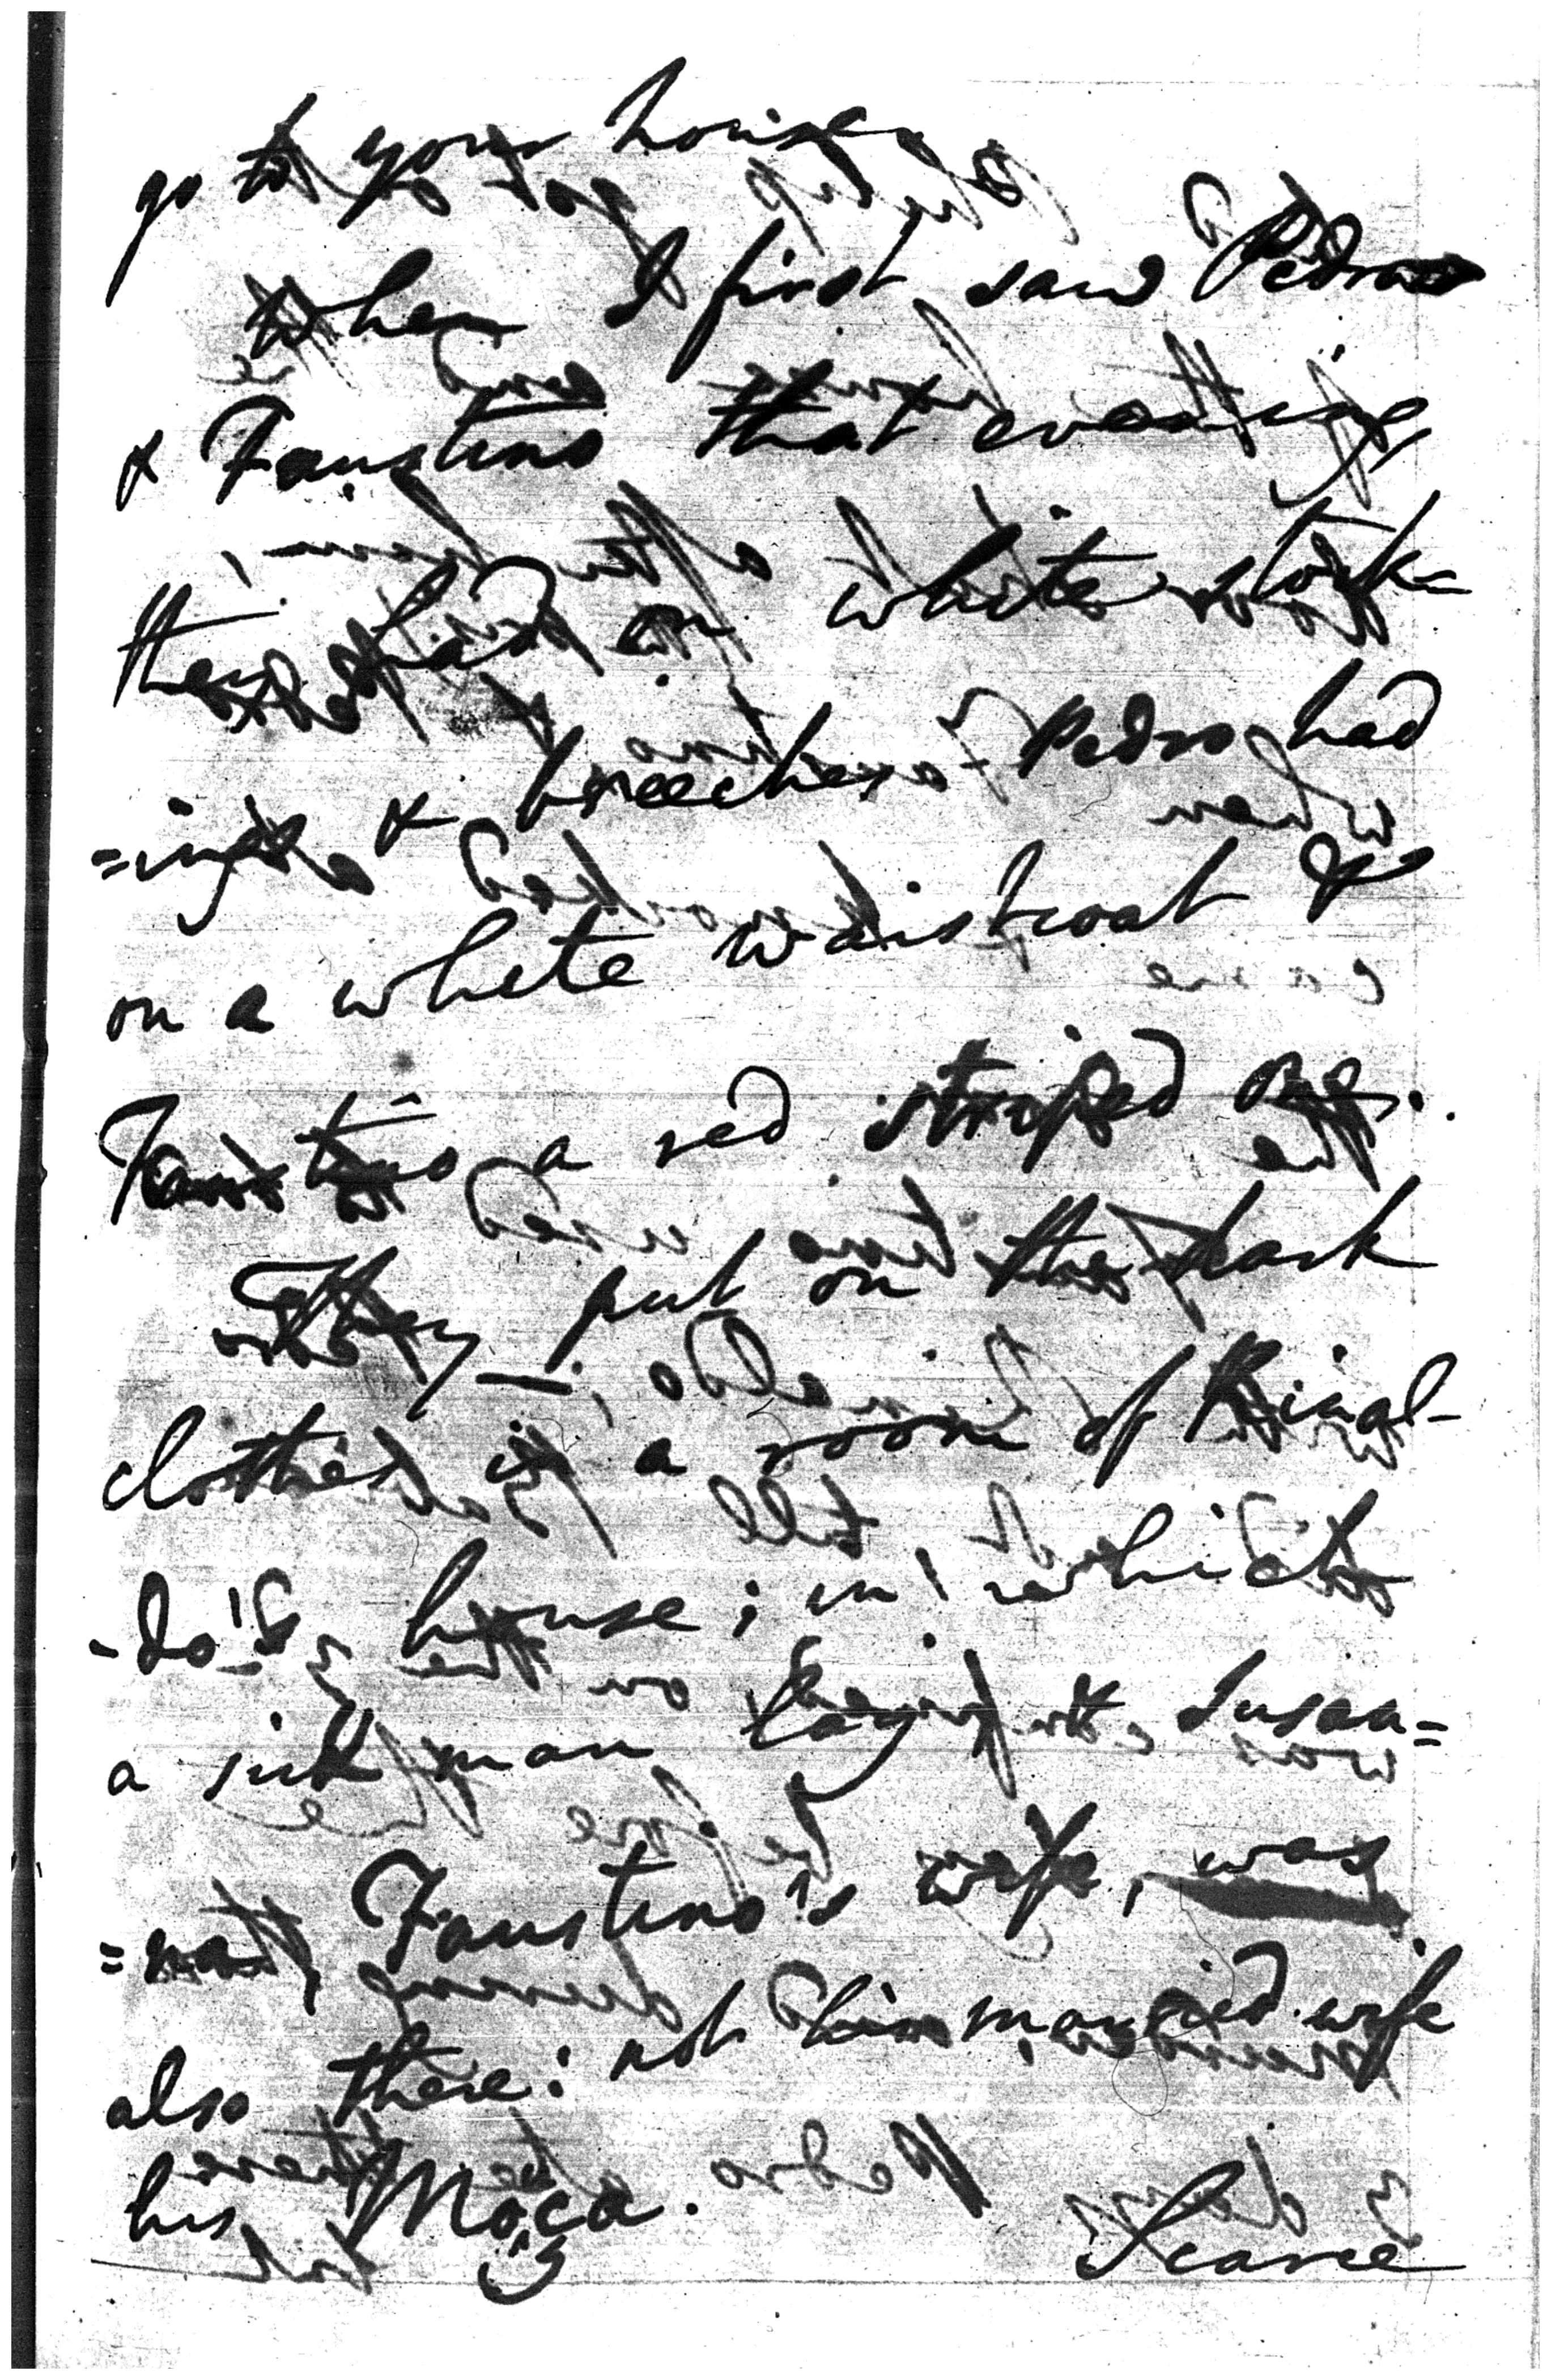 go to your house.
When I first saw Pedro
& Faustino that evening,
they had on white stock=
=ings & breeches. Pedro had
on a white waistcoat &
Faustino a red striped one.
They put on the dark
clothes in a room of Rinal-
-do's house; in which
a sick man lay. Susan=
=na, Faustino's wife, was
also there: not his married wife
his Moça.
I came